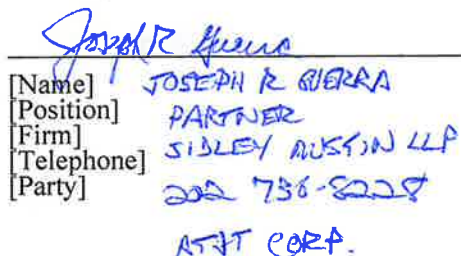 Joseph R Guerra
[Name] JOSEPH R GUERRA
[Position] PARTNER
[Firm] SIDLEY AUSTIN LLP
[Telephone] 202 736-8228
[Party] AT&T CORP.